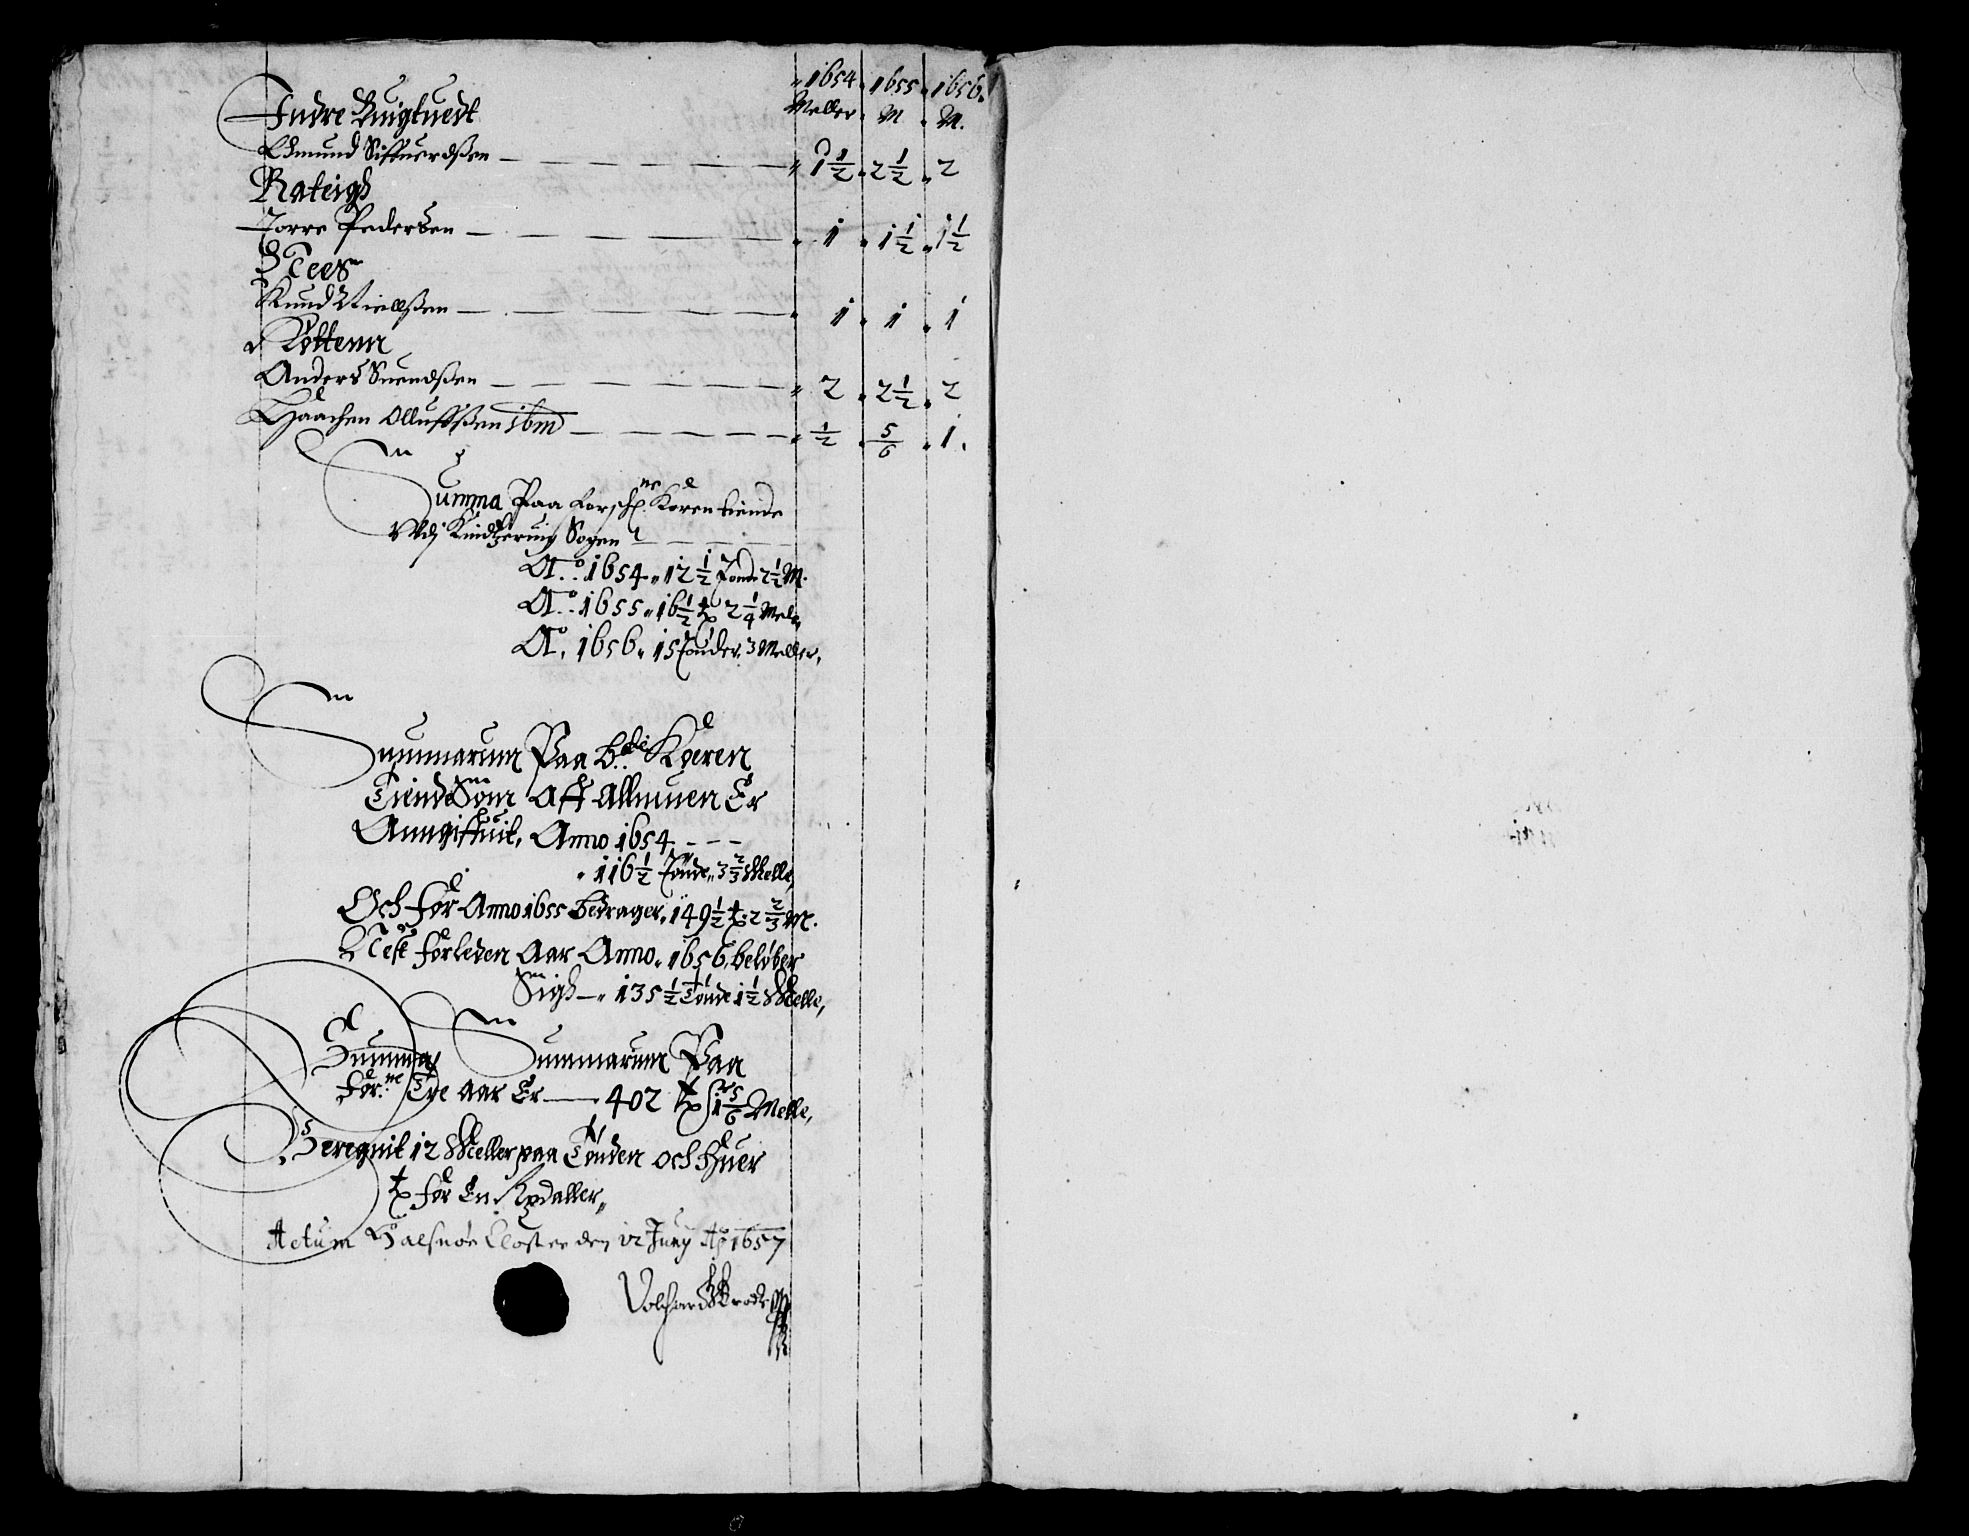 1654 · 1655 · 1656
Meller · M · M.
Indre Buigtuedt
Edmund Siffuerdßen — — — — " 1½ · 2½ · 2
Rateigh
Torre Pedersen — — — — 1 · 1½ · 1½
Tees
Knud Nielßen — — — — 1 · 1 · 1
Anders Suendßen — — — — 2 · 2½ · 2
Haachen Olluffßen ibm — — — ½ · 5/6 · 1.
Summa Paa forschne Korentiende
Udj Kindtzeruig Sogen
Ao. 1654 " 12½ Tønde 2½ M.
Ao. 1655 " 16½ tø 2¼ Mele
Ao. 1656 " 15 Tønder 3 Meller,
Summarum Paa b.de Koeren
Tiende Som Aff Allmuen Er
Anngiffuit, Anno 1654 - - -
" 116½ Tønde " 3⅔ Melle,
Och for Anno 1655 bedrager, 149½ tø: 2⅔ M.
Nest forleden Aar Anno, 1656, beløber
Sigh — " 135½ Tønde 1½ Melle,
Summa Summarum Paa
for.ne Tre Aar Er — 402 tø 1 5/6 Melle,
Beregnit 12 Meller paa Tønden och Huer
tø for En Rixdaller,,
Actum Halsnøe Closter den 12 Junij Ao 1657
Volchard Brodersen